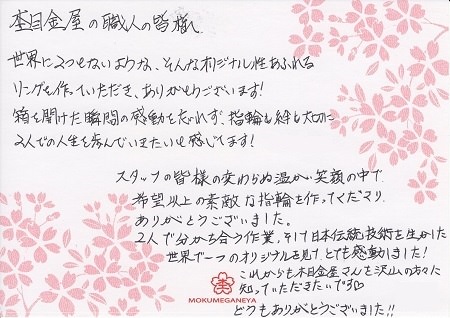 杢目金屋の職人の皆様へ
世界に2つとないような、そんなオリジナル性あふれる
リングを作っていただき、ありがとうございます!
箱を開けた瞬間の感動を忘れず、指輪も絆も大切に
2人での人生を歩んでいきたいと感じてます!
スタッフの皆様の変わらぬ温かい笑顔の中で
希望以上の素敵な指輪を作ってくださり
ありがとうございました。
2人で分かち合う作業、そして日本伝統技術を生かした
世界で一つのオリジナルを見て、とても感動しました!
これからも木目金屋さんを沢山の方々に
知っていただきたいです♡
どうもありがとうございました!!
MOKUMEGANEYA